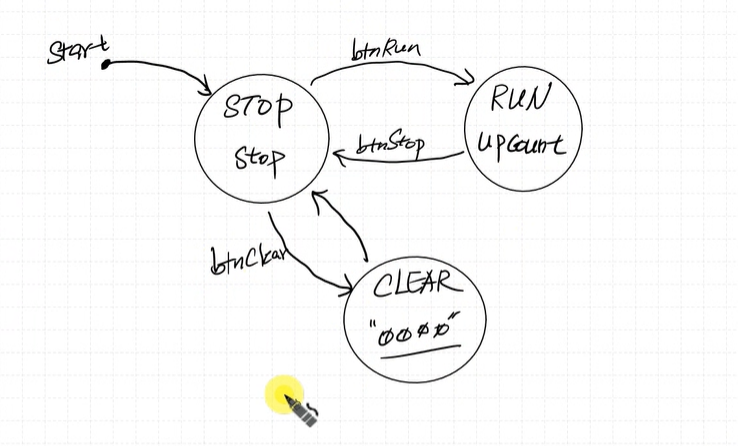 Start
btnRun
STOP
Stop
RUN
UpCount
btnStop
btnClear
CLEAR
"0000"